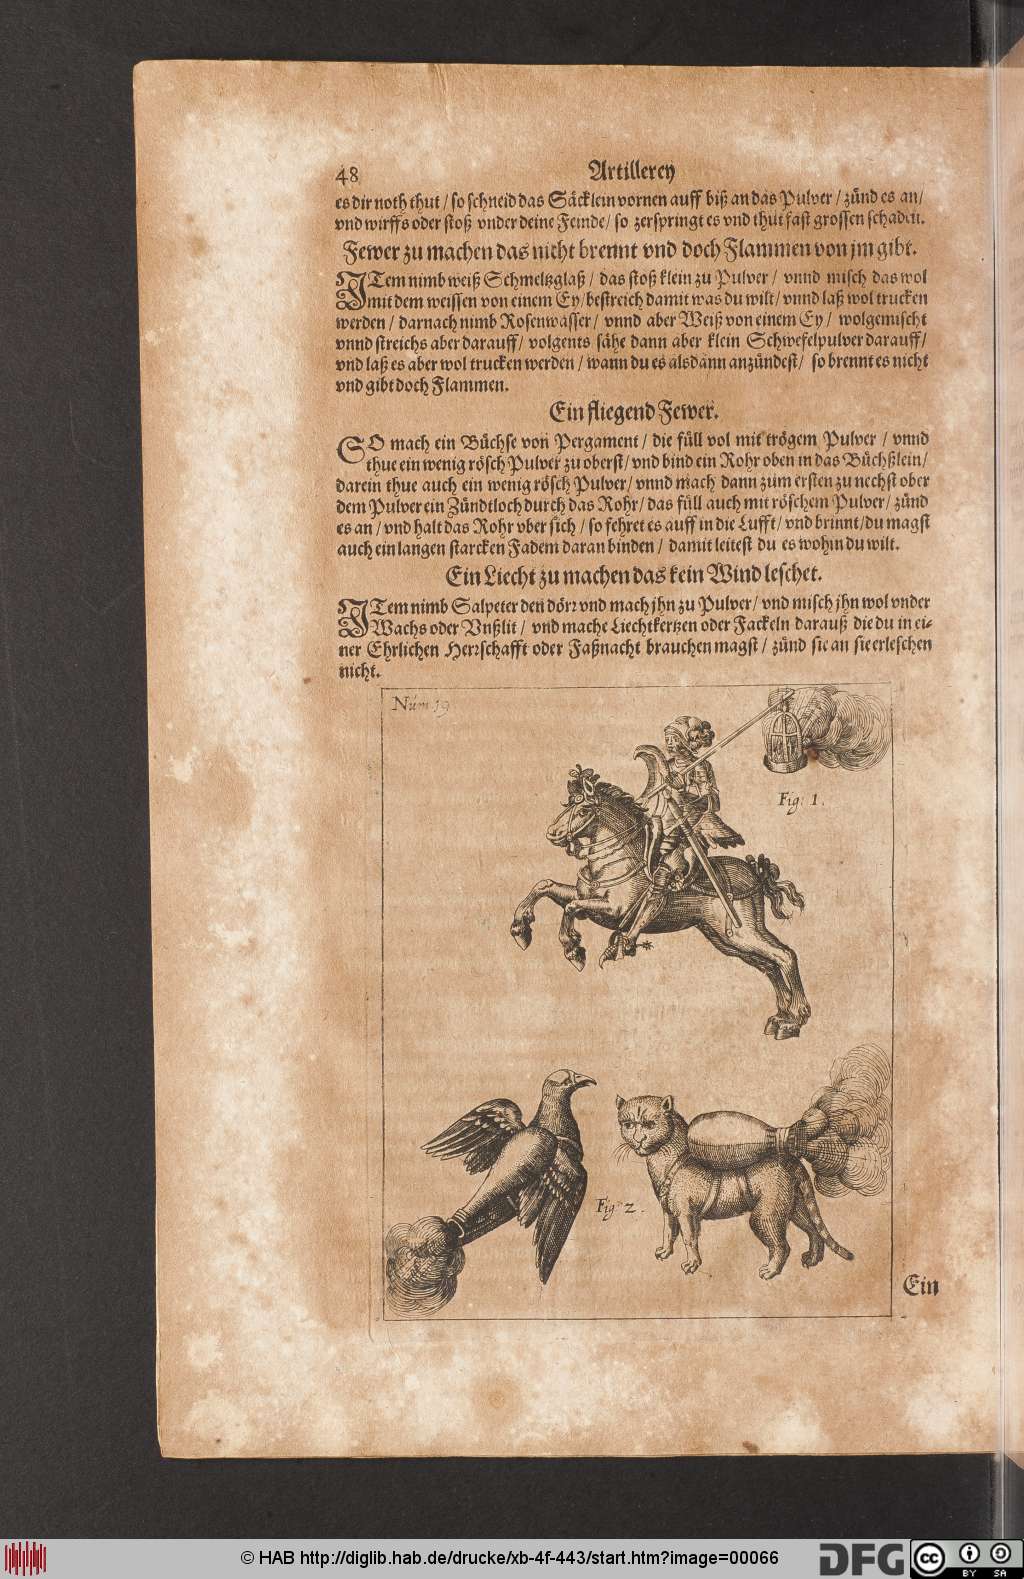 48
Artillerey
es dir noth thut / so schneid das Säcklein vornen auff biß an das Pulver / zünd es an /
vnd wirffs oder stoß vnder deine Feinde / so zerspringt es vnd thut fast grossen schaden.
Fewer zu machen das nicht brennt vnd doch Flammen von jm gibt.
ITem nimb weiß Schmeltzglaß / das stoß klein zu Pulver / vnnd misch das wol
mit dem weissen von einem Ey / bestreich damit was du wilt / vnnd laß wol trucken
werden / darnach nimb Rosenwasser / vnnd aber Weiß von einem Ey / wolgemischt
vnnd streichs aber darauff / volgents sähe dann aber klein Schwefelpulver darauff /
vnd laß es aber wol trucken werden / wann du es alsdann anzündest / so brennt es nicht
vnd gibt doch Flammen.
Ein fliegend Fewer.
SO mach ein Büchse von Pergament / die füll vol mit trögem Pulver / vnnd
thue ein wenig rösch Pulver zu oberst / vnd bind ein Rohr oben in das Büchßlein /
darein thue auch ein wenig rösch Pulver / vnnd mach dann zum ersten zu nechst ober
dem Pulver ein Zündtloch durch das Rohr / das füll auch mit röschem Pulver / zünd
es an / vnd halt das Rohr vber sich / so fehret es auff in die Lufft / vnd brinnt / du magst
auch ein langen starcken Fadem daran binden / damit leitest du es wohin du wilt.
Ein Liecht zu machen das kein Wind leschet.
ITem nimb Salpeter den dörr vnd mach jhn zu Pulver / vnd misch jhn wol vnder
Wachs oder Vnßlit / vnd mache Liechtkertzen oder Fackeln darauß die du in ei-
ner Ehrlichen Herrschafft oder Faßnacht brauchen magst / zünd sie an sie erleschen
nicht.
Núm 19
Fig: 1.
Fig: 2.
Ein
© HAB http://diglib.hab.de/drucke/xb-4f-443/start.htm?image=00066
DFG
cc
BY SA